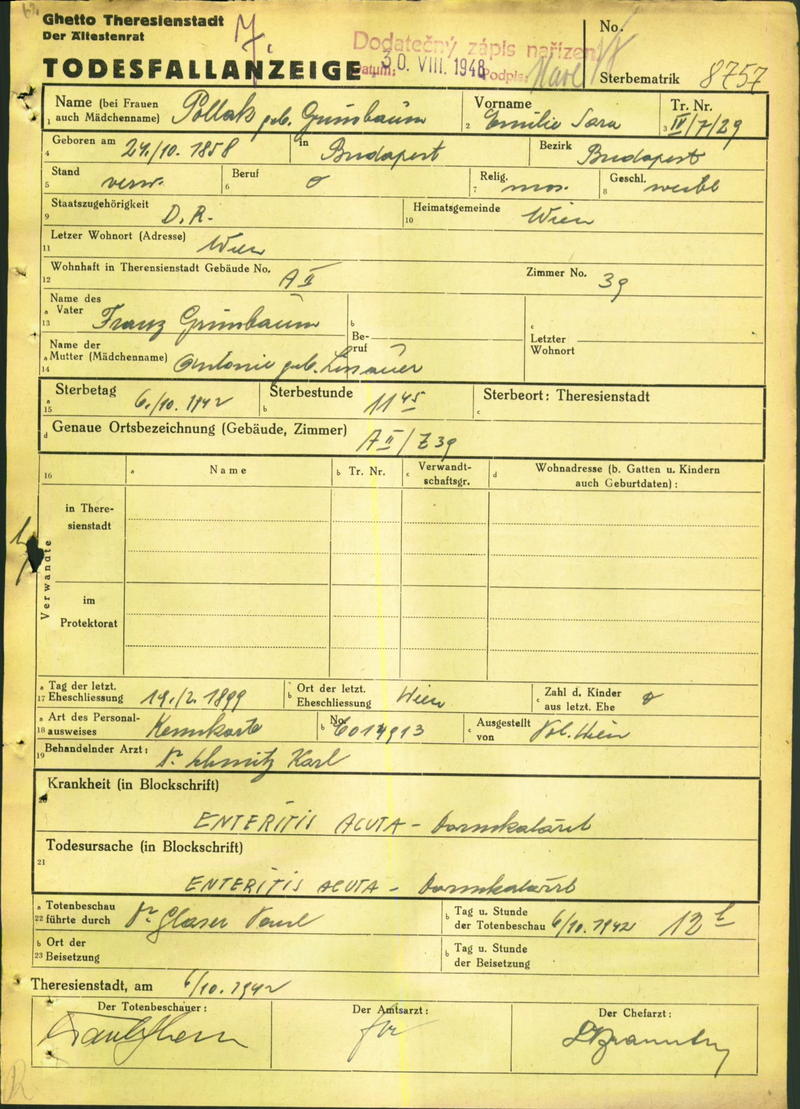 Ghetto Theresienstadt
Der Ältestenrat
TODESFALLANZEIGE
Dodatečný zápis nařízen
Datum: 30. VIII. 1948 Podpis:
No.
Sterbematrik 8757
Name (bei Frauen auch Mädchenname) 1 Pollak geb. Grünbaum
Vorname 2 Emilie Sara
Tr. Nr. 3 IV/7/29
Geboren am 4 24./10. 1858 in Budapest Bezirk Budapest
Stand 5 verw. Beruf 6 Relig. 7 mos. Geschl. 8 weibl
Staatszugehörigkeit 9 D.R. Heimatsgemeinde 10 Wien
Letzer Wohnort (Adresse) 11 Wien
Wohnhaft in Therensienstadt Gebäude No. 12 A II Zimmer No. 39
Name des a Vater 13 Franz Grünbaum
b Beruf
c Letzter Wohnort
Name der a Mutter (Mädchenname) 14 Antonie geb.
Sterbetag a 15 6./10. 1942 Sterbestunde b 11 45 Sterbeort: Theresienstadt c
Genaue Ortsbezeichnung (Gebäude, Zimmer) d A II / Z 39
16 a Name b Tr. Nr. c Verwandtschaftsgr. d Wohnadresse (b. Gatten u. Kindern auch Geburtdaten) :
Verwandte
in Theresienstadt
im Protektorat
a Tag der letzt. 17 Eheschliessung 19./2. 1899 b Ort der letzt. Eheschliessung Wien c Zahl d. Kinder aus letzt. Ehe
a Art des Personal- 18 ausweises Kennkarte b No. c Ausgestellt von Pol. Wien
19 Behandelnder Arzt: Dr Schmitz Karl
20 Krankheit (in Blockschrift)
ENTERITIS ACUTA - Darmkatarrh
Todesursache (in Blockschrift)
21
ENTERITIS ACUTA - Darmkatarrh
a Totenbeschau 22 führte durch Dr Glaser Paul b Tag u. Stunde der Totenbeschau 6/10. 1942 12 h
b Ort der 23 Beisetzung b Tag u. Stunde der Beisetzung
Theresienstadt, am 6/10. 1942
Der Totenbeschauer:
Der Amtsarzt:
Der Chefarzt: